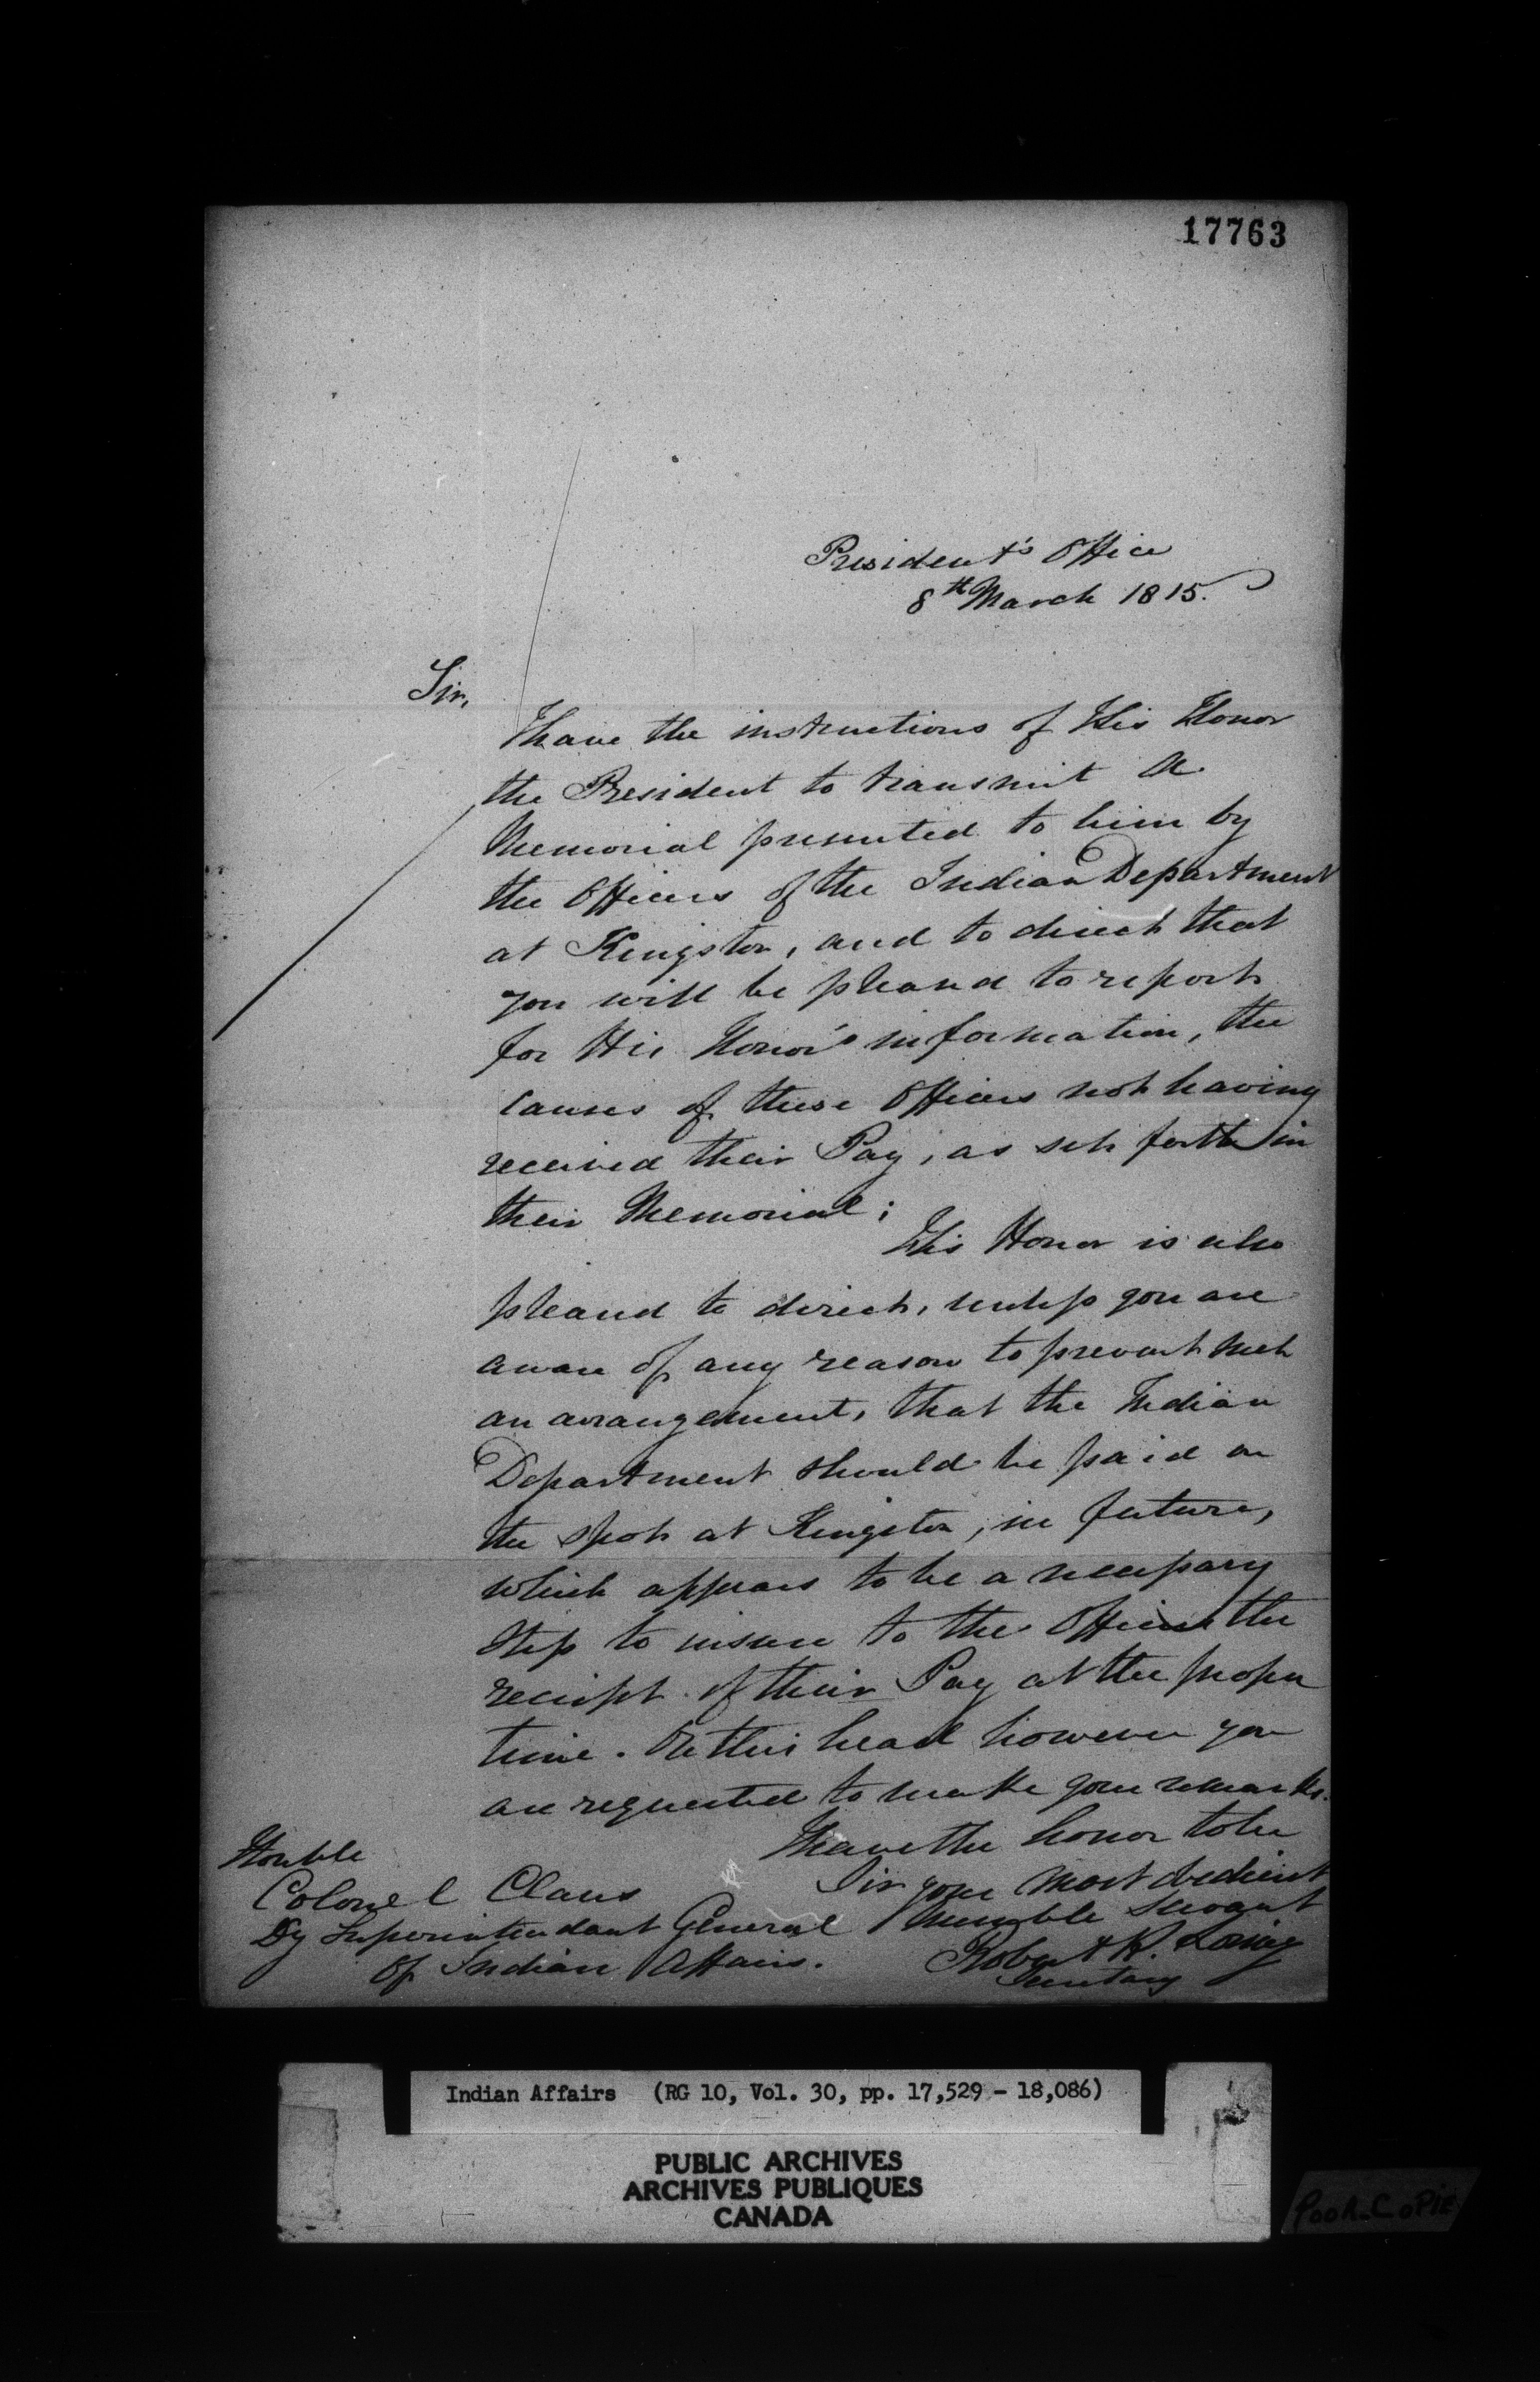 17763
President's Office
8th March 1815.
Sir,
I have the instructions of His Honor
the President to transmit a
Memorial presented to him by
the Officers of the Indian Department
at Kingston, and to direct that
you will be pleased to report
for His Honor's information, the
causes of these Officers not having
received their Pay, as set forth in
their Memorial;
His Honor is also
pleased to direct, unless you are
aware of any reason to prevent such
an arrangement, that the Indian
Department should be paid on
the spot at Kingston, in future,
which appears to be a necessary
step to insure to the Officers the
receipt of their Pay at the proper
time. On this head however you
are requested to make your remarks.
I have the honor to be
Sir your most obedient
humble Servant
Robert R. Loring
Secretary
Honble
Colonel Claus
Dy Superintendant General
of Indian Affairs.
Indian Affairs (RG 10, Vol. 30, pp. 17,529 - 18,086)
PUBLIC ARCHIVES
ARCHIVES PUBLIQUES
CANADA
POOR COPIE